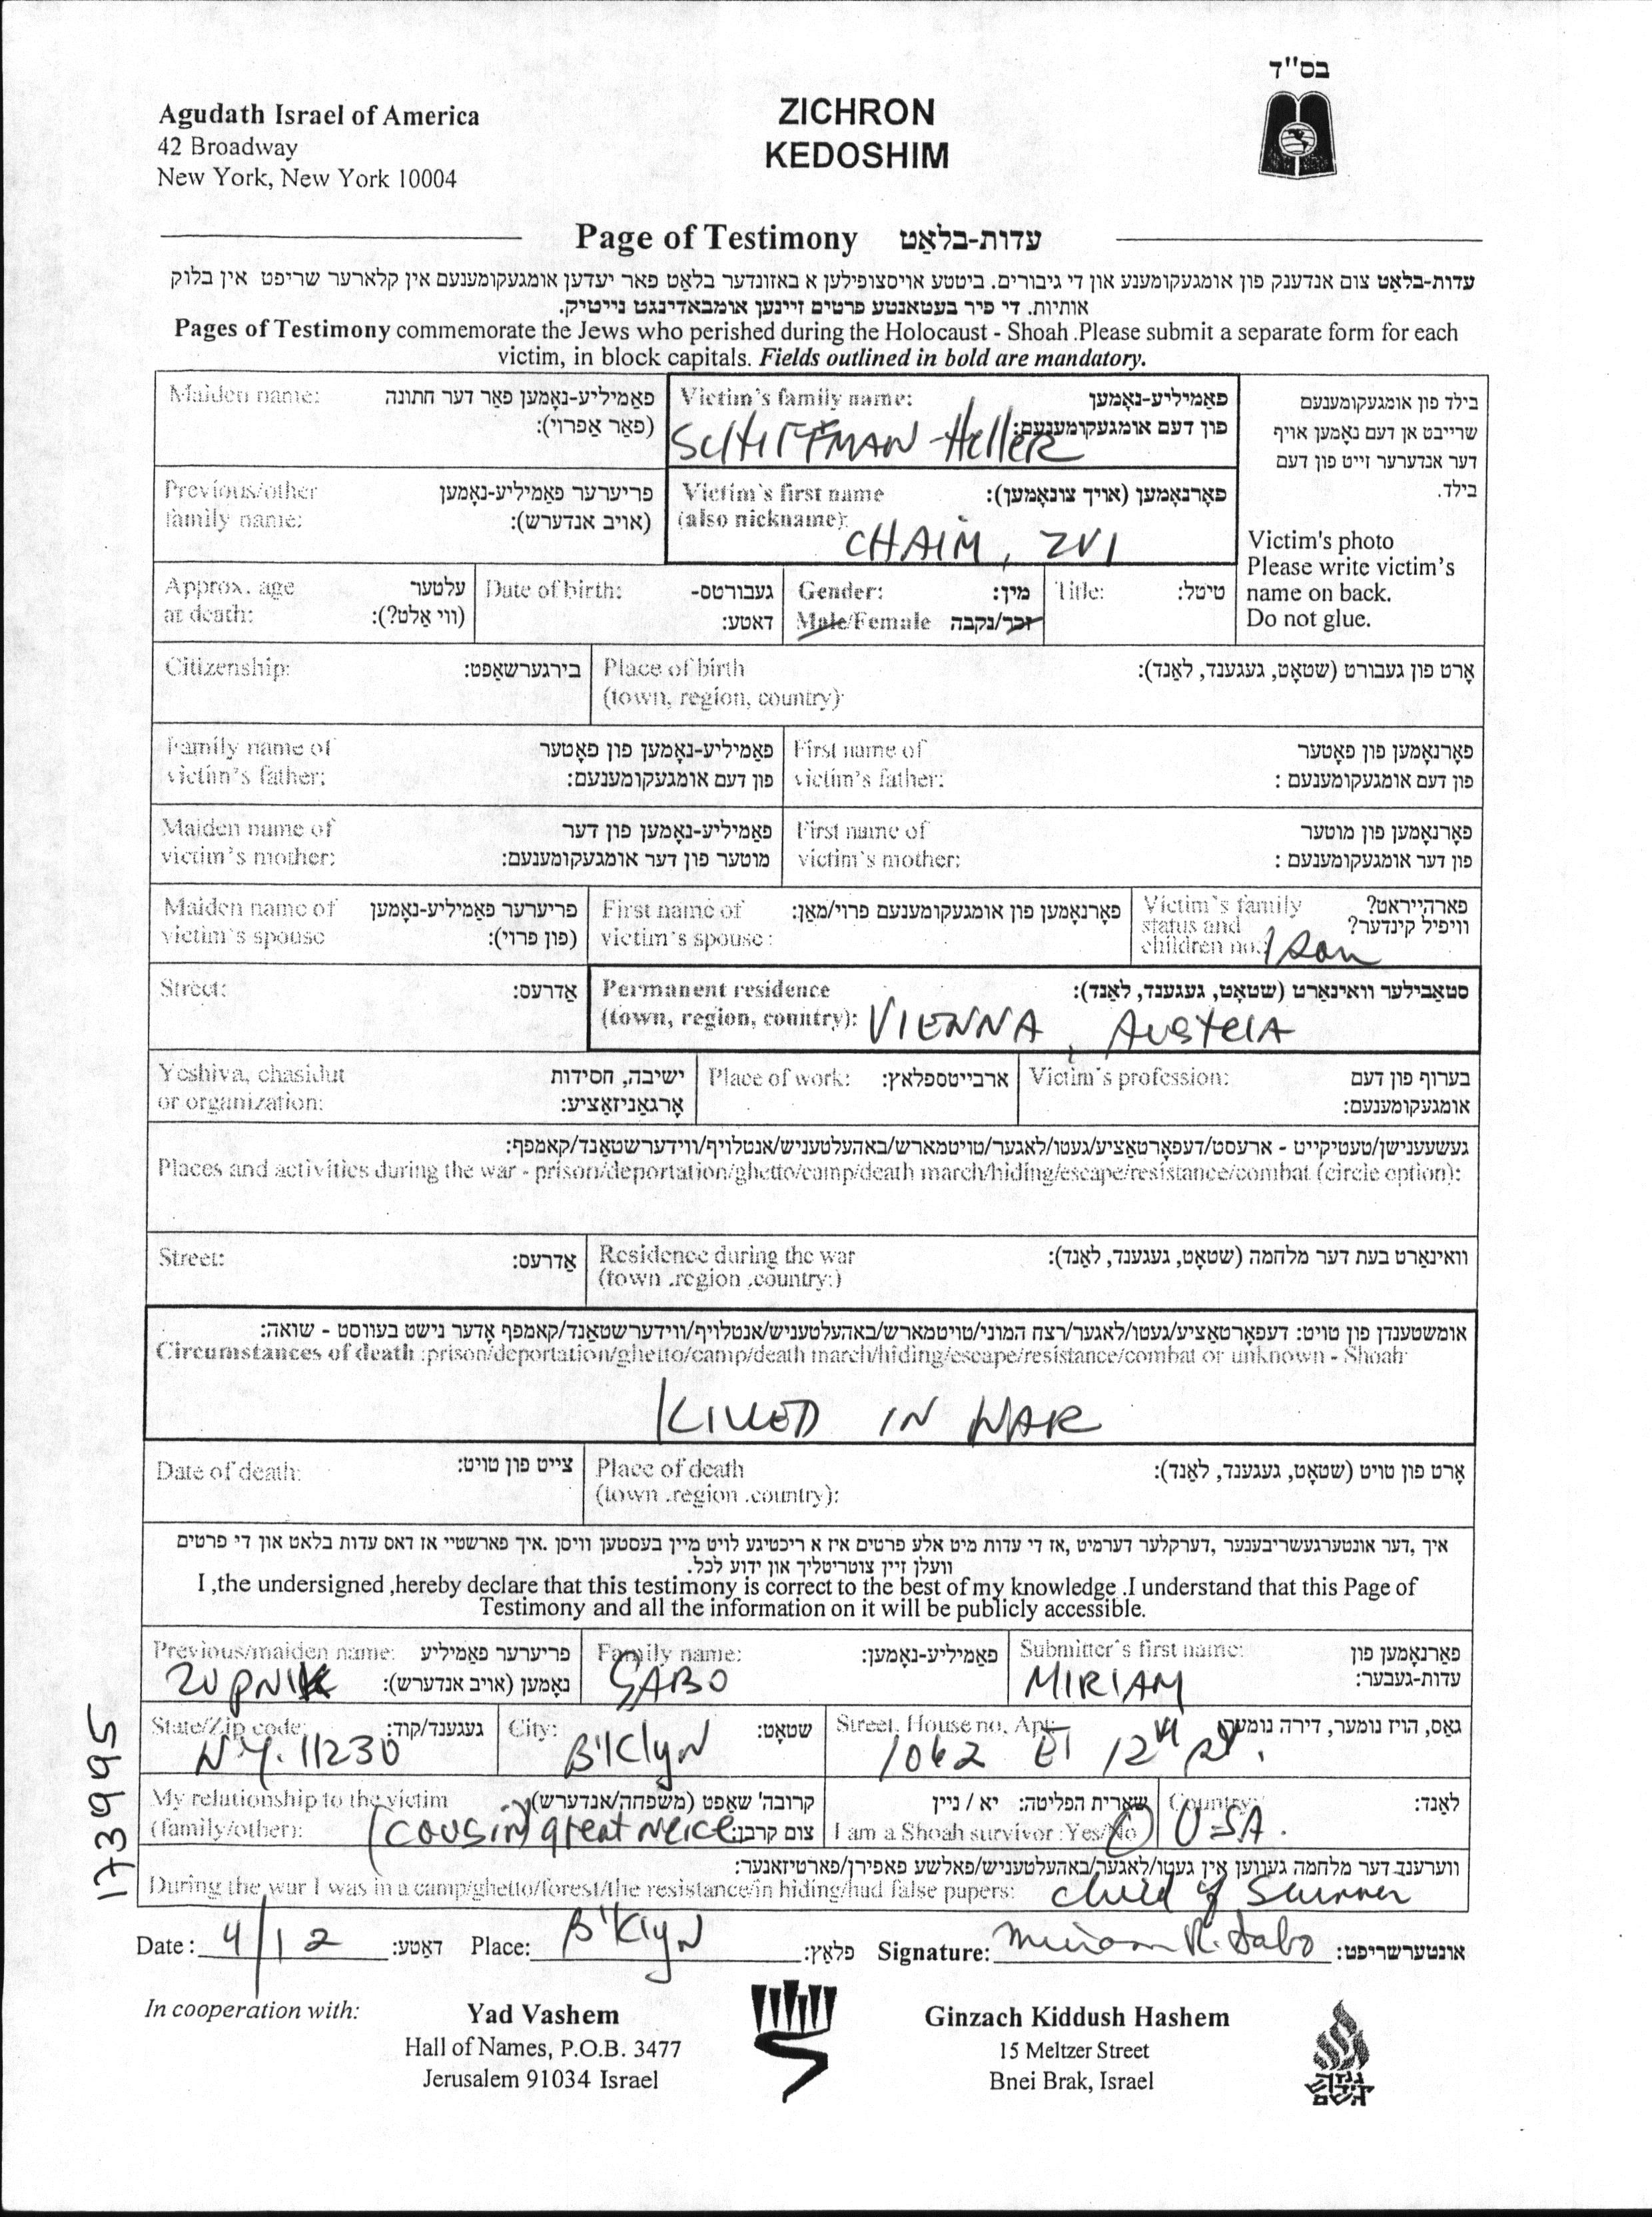 בס"ד
Agudath Israel of America
42 Broadway
New York, New York 10004
ZICHRON
KEDOSHIM
Page of Testimony עדות-בלאַט
עדות-בלאַט צום אנדענק פון אומגעקומענע און די גיבורים. ביטטע אויסצופילען א באזונדער בלאַט פאר יעדען אומגעקומענעם אין קלארער שריפט אין בלוק
אותיות. די פיר בעטאנטע פרטים זיינען אומבאדינגט נייטיק.
Pages of Testimony commemorate the Jews who perished during the Holocaust - Shoah .Please submit a separate form for each
victim, in block capitals. Fields outlined in bold are mandatory.
Maiden name: פאַמיליע-נאָמען פאַר דער חתונה
(פאַר אַפרוי):
Victim's family name: פאַמיליע-נאָמען
פון דעם אומגעקומענעם:
SCHIFFMAN-Heller
בילד פון אומגעקומענעם
שרייבט אן דעם נאָמען אויף
דער אנדערער זייט פון דעם
בילד.
Previous/other פריערער פאַמיליע-נאָמען
family name: (אויב אנדערש):
Victim's first name פאָרנאָמען (אויך צונאָמען):
(also nickname):
CHAIM, ZVI
Victim's photo
Please write victim's
name on back.
Do not glue.
Approx. age עלטער
at death: (ווי אַלט?):
Date of birth: געבורטס-
דאטע:
Gender: מין:
Male/Female זכר/נקבה
Title: טיטל:
Citizenship: בירגערשאַפט:
Place of birth אָרט פון געבורט (שטאָט, געגענד, לאַנד):
(town, region, country):
Family name of פאַמיליע-נאָמען פון פאָטער
victim's father: פון דעם אומגעקומענעם:
First name of פאָרנאָמען פון פאָטער
victim's father: פון דעם אומגעקומענעם :
Maiden name of פאַמיליע-נאָמען פון דער
victim's mother: מוטער פון דער אומגעקומענעם:
First name of פאָרנאָמען פון מוטער
victim's mother: פון דער אומגעקומענעם :
Maiden name of פריערער פאַמיליע-נאָמען
victim's spouse (פון פרוי):
First name of פאָרנאָמען פון אומגעקומענעם פרוי/מאַן:
victim's spouse:
Victim's family פארהייראט?
status and וויפיל קינדער?
children no.: 1 son
Street: אַדרעס:
Permanent residence סטאַבילער וואינאַרט (שטאָט, געגענד, לאַנד):
(town, region, country): VIENNA, AUSTRIA
Yeshiva, chasidut ישיבה, חסידות
or organization: אָרגאַניזאַציע:
Place of work: ארבייטספלאץ:
Victim's profession: בערוף פון דעם
אומגעקומענעם:
געשעענישן/טעטיקייט - ארעסט/דעפאָרטאַציע/געטו/לאגער/טויטמארש/באהעלטעניש/אנטלויף/ווידערשטאַנד/קאמפף:
Places and activities during the war - prison/deportation/ghetto/camp/death march/hiding/escape/resistance/combat (circle option):
Street: אַדרעס:
Residence during the war וואינאַרט בעת דער מלחמה (שטאָט, געגענד, לאַנד):
(town .region .country:)
אומשטענדן פון טויט: דעפאָרטאַציע/געטו/לאגער/רצח המוני/טויטמארש/באהעלטעניש/אנטלויף/ווידערשטאַנד/קאמפף אָדער נישט בעוואוסט - שואה:
Circumstances of death :prison/deportation/ghetto/camp/death march/hiding/escape/resistance/combat or unknown - Shoah
KILLED IN WAR
Date of death: צייט פון טויט:
Place of death אָרט פון טויט (שטאָט, געגענד, לאַנד):
(town .region .country):
איך ,דער אונטערגעשריבענער ,דערקלער דערמיט ,אז די עדות מיט אלע פרטים איז א ריכטיגע לויט מיין בעסטען וויסן .איך פארשטיי אז דאס עדות בלאט און די פרטים
וועלן זיין צוטריטליך און ידוע לכל.
I ,the undersigned ,hereby declare that this testimony is correct to the best of my knowledge .I understand that this Page of
Testimony and all the information on it will be publicly accessible.
Previous/maiden name: פריערער פאַמיליע
נאָמען (אויב אנדערש):
ZUPNIK
Family name: פאַמיליע-נאָמען:
SABO
Submitter's first name: פאָרנאָמען פון
עדות-געבער:
MIRIAM
State/Zip code: געגענד/קוד:
N.Y. 11230
City: שטאָט:
B'klyN
Street, House no, Apt: גאַס, הויז נומער, דירה נומער
1062 E 12th St.
My relationship to the victim קרובה' שאַפט (משפחה/אנדערש)
(family/other): צום קרבן:
(cousin) great neice
שארית הפליטה: יא / ניין
I am a Shoah survivor :Yes/No
Country: לאַנד:
USA.
ווערענב דער מלחמה געווען אין געטו/לאגער/באהעלטעניש/פאלשע פאפירן/פארטיזאנער:
During the war I was in a camp/ghetto/forest/the resistance/in hiding/had false papers: child of Survivor
Date: 4/12 דאַטע: Place: B'KlyN פלאַץ: Signature: Miriam R. Sabo אונטערשריפט:
173995
In cooperation with:
Yad Vashem
Hall of Names, P.O.B. 3477
Jerusalem 91034 Israel
Ginzach Kiddush Hashem
15 Meltzer Street
Bnei Brak, Israel